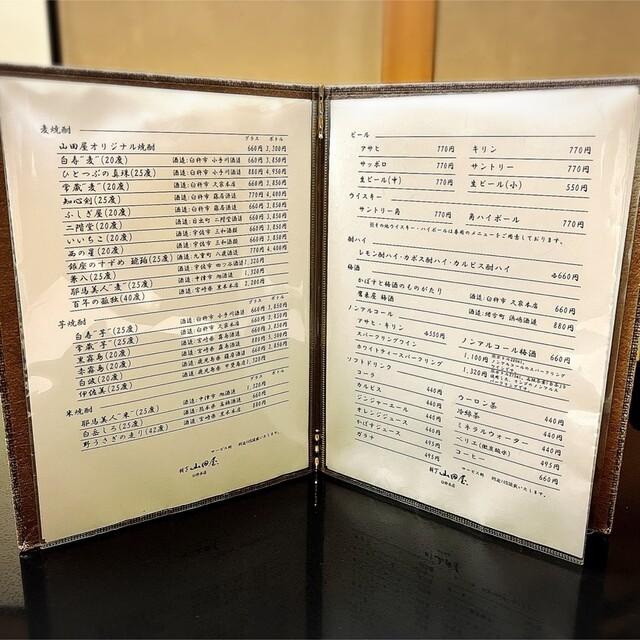 麦焼酎
グラス ボトル
山田屋オリジナル焼酎 660円 3,300円
白寿"麦"(20度) 酒造:臼杵市 小手川酒造 660円 3,850円
ひとつぶの真珠(25度) 酒造:臼杵市 小手川酒造 880円 4,950円
常蔵"麦"(25度) 酒造:臼杵市 久家本店 660円 3,850円
知心剣(25度) 酒造:臼杵市 藤居酒造 770円 4,400円
ふしぎ屋(20度) 酒造:臼杵市 藤居酒造
二階堂(20度) 酒造:日出町 二階堂酒造
いいちこ(20度) 酒造:宇佐市 三和酒類
西の星(20度) 酒造:宇佐市 三和酒類
銀座のすずめ 琥珀(25度) 酒造:九重町 八鹿酒造
兼八(25度) 酒造:宇佐市 四ッ谷酒造 1,320円
耶馬美人"麦"(25度) 酒造:中津市 旭酒造 1,320円
百年の孤独(40度) 酒造:宮崎県 黒木本店 2,200円
芋焼酎
グラス ボトル
白寿"芋"(25度) 酒造:臼杵市 小手川酒造 660円 3,850円
常蔵"芋"(25度) 酒造:臼杵市 久家本店 660円 3,850円
黒霧島(20度) 酒造:宮崎県 霧島酒造
赤霧島(20度) 酒造:宮崎県 霧島酒造
白波(20度) 酒造:鹿児島県
伊佐美(25度) 酒造:鹿児島県 甲斐商店 1,320円
米焼酎
耶馬美人"米"(25度) 酒造:中津市 旭酒造 1,320円
白岳しろ(25度)
野うさぎの走り(42度) 酒造:宮崎県 黒木本店
サービス料 別途10%頂戴いたします。
料亭 山田屋
臼杵本店
ビール
アサヒ 770円 キリン 770円
サッポロ 770円 サントリー 770円
生ビール(中) 770円 生ビール(小) 550円
ウイスキー
サントリー角 770円 角ハイボール 770円
※その他ウイスキー・ハイボールは専用のメニューをご用意しております。
酎ハイ
レモン酎ハイ・カボス酎ハイ・カルピス酎ハイ 各660円
梅酒
かぼすと梅酒のものがたり 酒造:臼杵市 久家本店 660円
鷹来屋 梅酒 酒造:緒方町 浜嶋酒造 880円
ノンアルコール
アサヒ・キリン 各550円 ノンアルコール梅酒 660円
スパークリングワイン 1,100円
ホワイトティースパークリング 1,320円
ソフトドリンク
コーラ 440円 ウーロン茶 440円
カルピス 440円 冷緑茶 440円
ジンジャーエール 440円 ミネラルウォーター 440円
オレンジジュース 440円 ペリエ(微炭酸水) 495円
かぼすジュース 495円 コーヒー 660円
ガラナ 495円
サービス料 別途10%頂戴いたします。
料亭 山田屋
臼杵本店